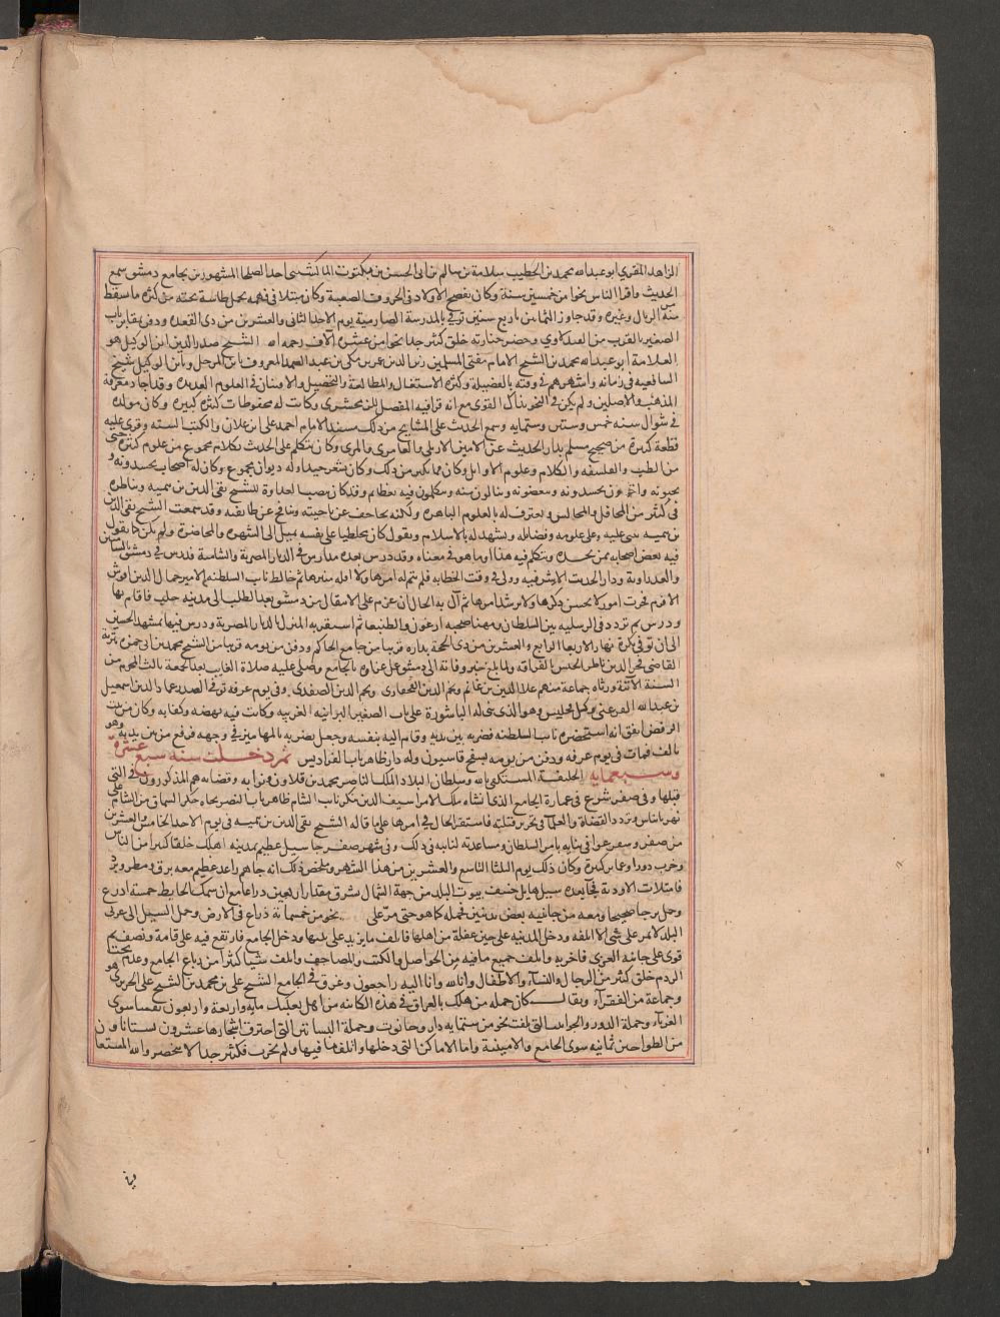 الزاهد المقري ابو عبدالله محمد بن الخطيب سلامة بن سالم بن ابي الحسن بن احد الصلحا المشهورين بجامع دمشق سمع
الحديث واقرا الناس نحوا من خمسين سنة وكان يفصح الاولاد في الحروف الصعبة وكان مبتلا في فمه يحمل طاسة تحته من كثرة ما يسقط
منه من الريال وغيره وقد جاوز الثمانين باربع سنين توفي بالمدرسة الصارمية يوم الاحد الثاني والعشرين من ذي القعده ودفن بمقابر باب
الصغير بالقرب من القندلاوي وحضر جنازته خلق كثير جدا نحوا من عشرة آلاف رحمه الله الشيخ صدر الدين ابن الوكيل هو
العلامة ابو عبدالله محمد بن الشيخ الامام مفتي المسلمين زين الدين عمر بن مكي بن عبد الصمد المعروف بابن المرحل وبابن الوكيل شيخ
الشافعيه في زمانه واشهرهم في وقته بالفضيلة وكثرة الاشتغال والمطالعة والتحصيل والافتنان في العلوم العديده وقد اجاد معرفة
المذهب والاصلين ولم يكن في النحو بذاك القوي مع انه قرا فيه المفصل للزمخشري وكانت له محفوظات كثيرة كبيره وكان مولده
في شوال سنه خمس وستين وستمايه وسمع الحديث على المشايخ من ذلك مسند الامام احمد على ابن علان والكتب الستة وقري عليه
قطعة كبيرة من صحيح مسلم بدار الحديث عن الامين الاربلي والعامري والمزي وكان يتكلم على الحديث بكلام مجموع من علوم كثيرة حتى
من الطب والفلسفه والكلام وعلوم الاوايل وكان مما يكثر من ذلك وكان يشعر جيدا وله ديوان مجموع وكان له اصحاب يحسدونه و
يحبونه واخرون يحسدونه ويبغضونه وينالون منه ويتكلمون فيه بعظائم وقد كان ينصب العداوة للشيخ تقي الدين بن تيميه ويناظره
في كثير من المحافل والمجالس ويعترف له بالعلوم الباهره ولكنه يجاحف عن ناحيته وينافح عن طايفته وقد سمعت الشيخ تقي الدين
بن تيميه يثني عليه وعلى علومه وفضايله ويشهد له بالاسلام ويقول كان مخلطا على نفسه يميل الى الشهره والمحاضرة ولم يكن كما يقول
فيه بعض اصحابه ممن يحسده ويتكلم فيه هذا او ما هو في معناه وقد درس بعده مدارس في الديار المصرية والشامية فدرس في دمشق بالشاميتين
والعذراوية ودار الحديث الاشرفيه وولي في وقت الخطابه فلم يتم له امرها ولا اقام منبرها ثم خالط نايب السلطنه الامير جمال الدين اقوش
الافرم فجرت امور لا يحسن ذكرها ولا يرشد امرها ثم آل به الحال ان عزم على الانتقال من دمشق بعد الطلب الى مدينه حلب فاقام بها
ودرس ثم تردد في الرسليه بين السلطان ومهنا صحبه ارغون والطنبغا ثم استقر به المنزل بالديار المصرية ودرس فيها بمشهد الحسين
الى ان توفي بكرة نهار الاربعا الرابع والعشرين من ذي الحجة بداره قريبا من جامع الحاكم ودفن من يومه قريبا من الشيخ محمد بن ابي حمزه بتربة
القاضي فخر الدين ناظر الجيش بالقرافه ولما بلغ خبر وفاته الى دمشق صلي عليه بالجامع صلاة الغايب بعد الجمعة ثالث المحرم من
السنة الآتية ورثاه جماعة منهم علا الدين بن غانم ونجم الدين القحفازي ونجم الدين الصفدي وفي يوم عرفة توفي الصدر عماد الدين اسمعيل
بن عبدالله وكيل قجليس وهو الذي بني له الباشورة على باب الصغير البرانيه الغربيه وكانت فيه نهضه وكفايه وكان من بيت
الرفض اتفق انه استحضره نايب السلطنه فضربه بين يديه وقام اليه بنفسه وجعل يضربه بالمهاميز في وجهه فرفع من بين يديه وهو
تالف فمات في يوم عرفه ودفن من يومه بسفح قاسيون وله دار ظاهر باب الفراديس ثم دخلت سنه سبع عشرة
وسبعمايه الخليفة المستكفي بالله وسلطان البلاد الملك الناصر محمد بن قلاون ونوابه وقضاته هم المذكورون في التي
قبلها وفي صفر شرع في عمارة الجامع الذي انشاه ملك الامرا سيف الدين تنكز نايب الشام ظاهر باب النصر تجاه حكر السماق من الشام على
نهر بانياس وتردد القضاة والعلما في تحرير قبلته فاستقر الحال في امرها على ما قاله الشيخ تقي الدين بن تيميه في يوم الاحد الخامس والعشرين
من صفر وشرعوا في بنايه بامر السلطان ومساعدته لنايبه في ذلك وفي شهر صفر جا سيل عظيم بمدينه اهلك خلقا كثيرا من الناس
وخرب دورا وعماير كثيرة وكان ذلك يوم الثلثا التاسع والعشرين من هذا الشهر وملخص ذلك انه جاهم راعد عظيم معه برق ومطر وبرد
فامتلات الاودية ثم جا بعده سيل هايل خسف بيوت البلد من جهة الشمال بشرق مقدار اربعين ذراعا مع ان سمك الحايط خمسة اذرع
وحمل برجا صحيحا ومعه من جانبيه بعض بدنتين فحمله كما هو حتى مر على نحو من خمسمائة ذراع في الارض وحمل السيل الى غربي
البلد لا يمر على شي الا اتلفه ودخل المدينه على حين غفلة من اهلها فاتلف ما يزيد على ثلثها ودخل الجامع فارتفع فيه على قامة ونصف ثم
قوي على حايطه الغربي فاخربه واتلف جميع ما فيه من الحواصل والكتب والمصاحف واتلف شيا كثيرا من رباع الجامع وهلك تحت
الردم خلق كثير من الرجال والنساء والاطفال وانا لله وانا اليه راجعون وغرق في الجامع الشيخ علي بن محمد بن الشيخ علي الحريري هو
وجماعة من الفقراء ويقال كان جمله من هلك بالغراق في هذه الكاينه من اهل بعلبك مايه واربعة واربعون نفسا سوى
الغرباء وجملة الدور والحوانيت التي تلفت نحو من ستمايه دار وحانوت وجملة البساتين التي احترف اشجارها عشرون بستانا ون
من الطواحين ثمانيه سوى الجامع والامينية واما الاماكن التي دخلها واتلف ما فيها ولم تخرب فكثير جدا لا ينحصر والله المستعا